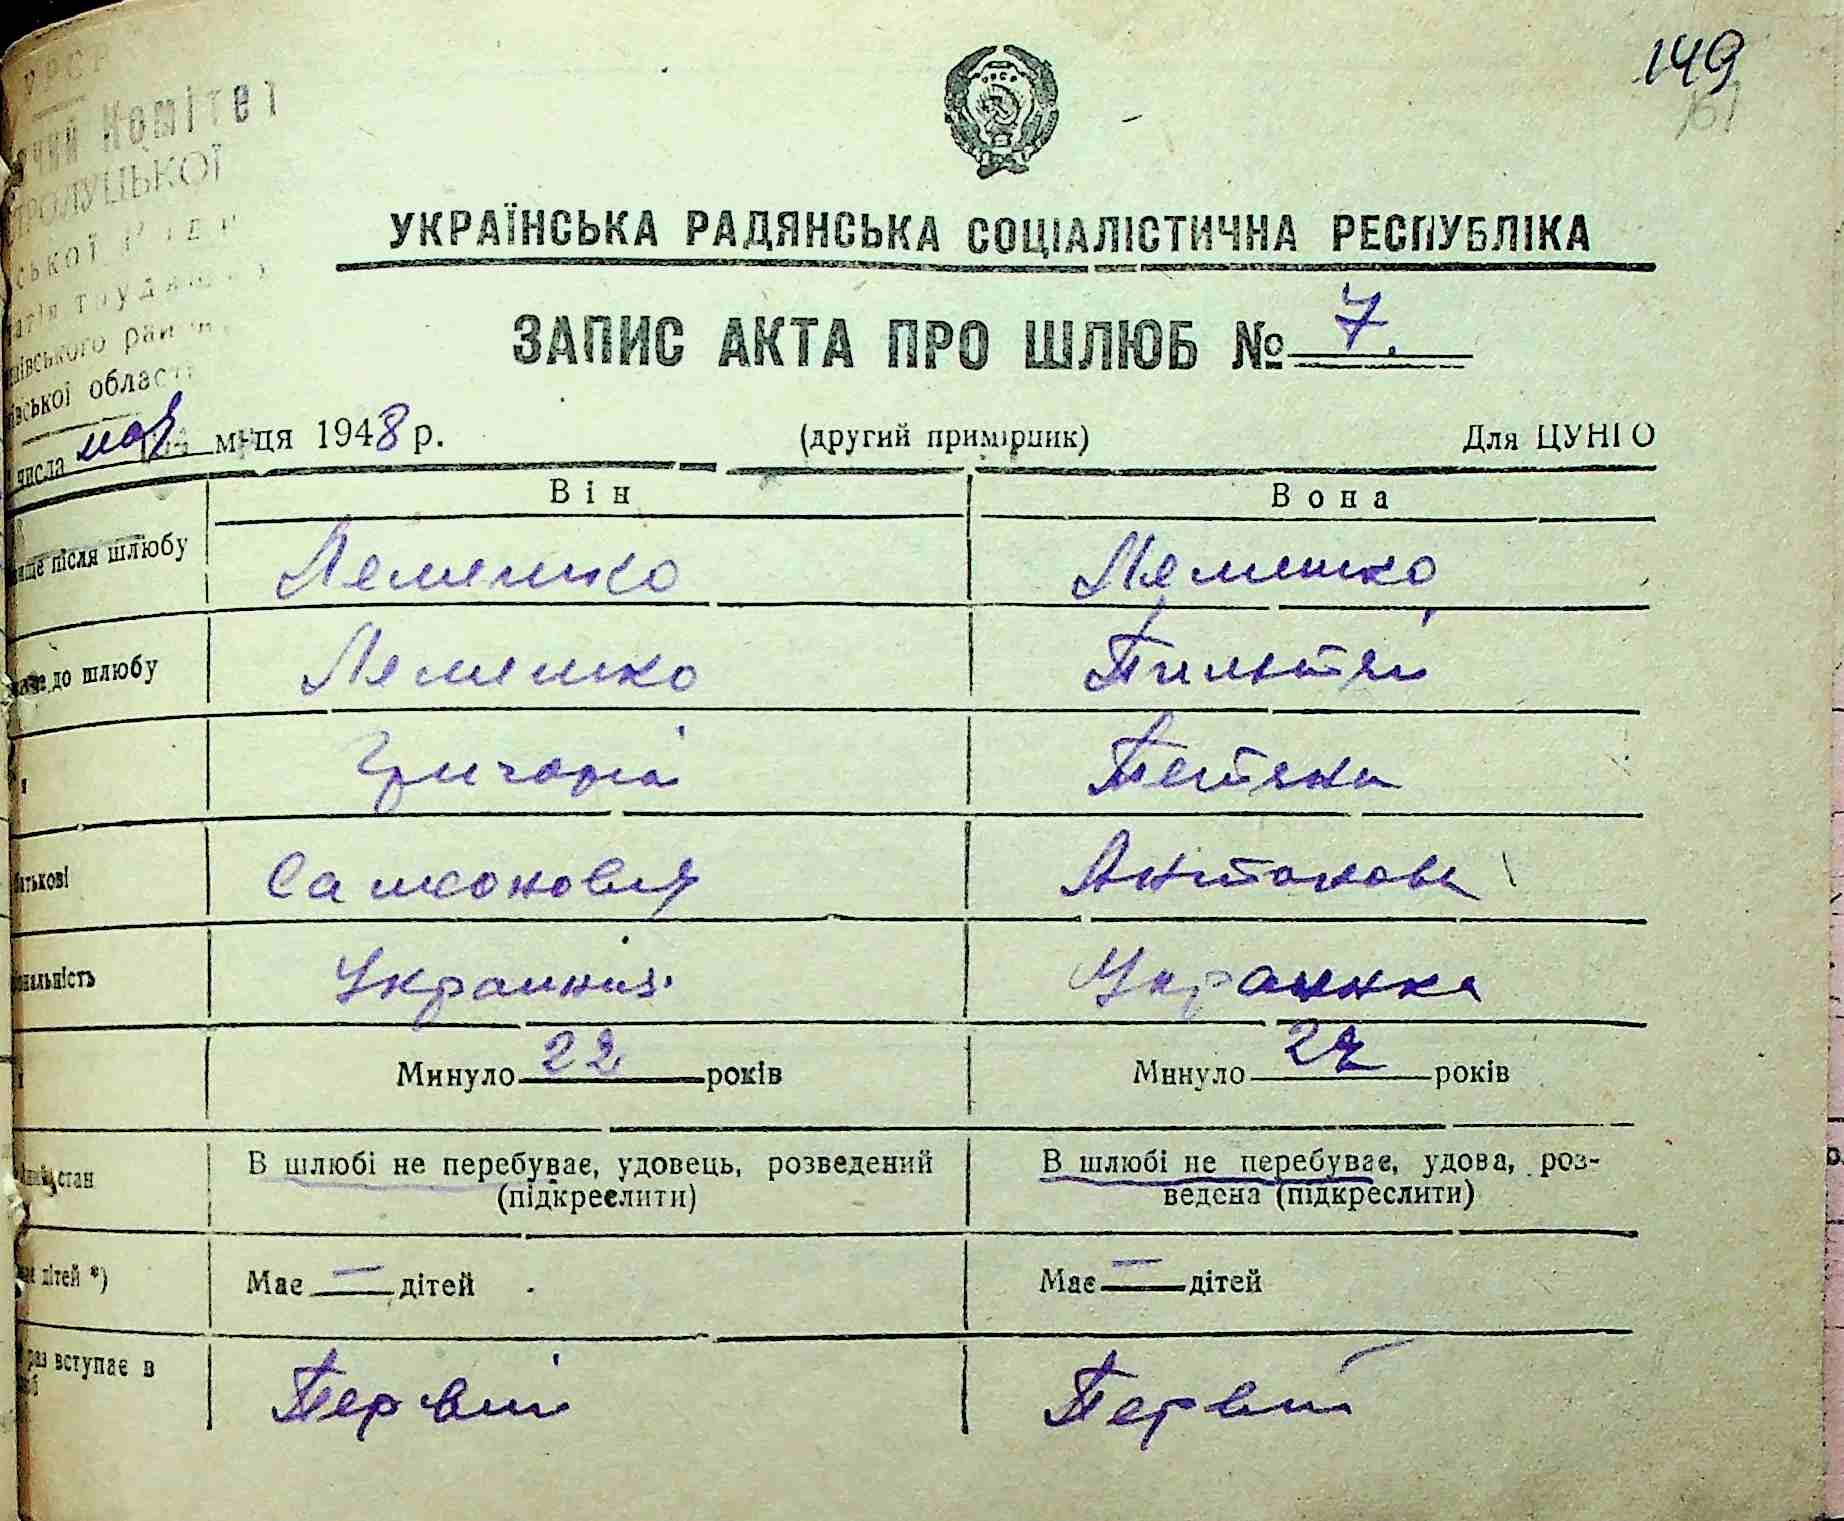 149
161
УРСР
Комітет
ПРОЛУЦЬКОЇ
ської
області
УКРАЇНСЬКА РАДЯНСЬКА СОЦІАЛІСТИЧНА РЕСПУБЛІКА
ЗАПИС АКТА ПРО ШЛЮБ № 7.
числа мая м-ця 1948 р. (другий примірник) Для ЦУНГО
Він Вона
після шлюбу Лемешко Лемешко
до шлюбу Лемешко
Григорій Тетяна
батькові Самсонович Антонова
Украинец Украинка
Минуло 22 років Минуло 22 років
стан В шлюбі не перебуває, удовець, розведений В шлюбі не перебуває, удова, роз-
(підкреслити) ведена (підкреслити)
дітей *) Має — дітей Має — дітей
раз вступає в Первий Первий